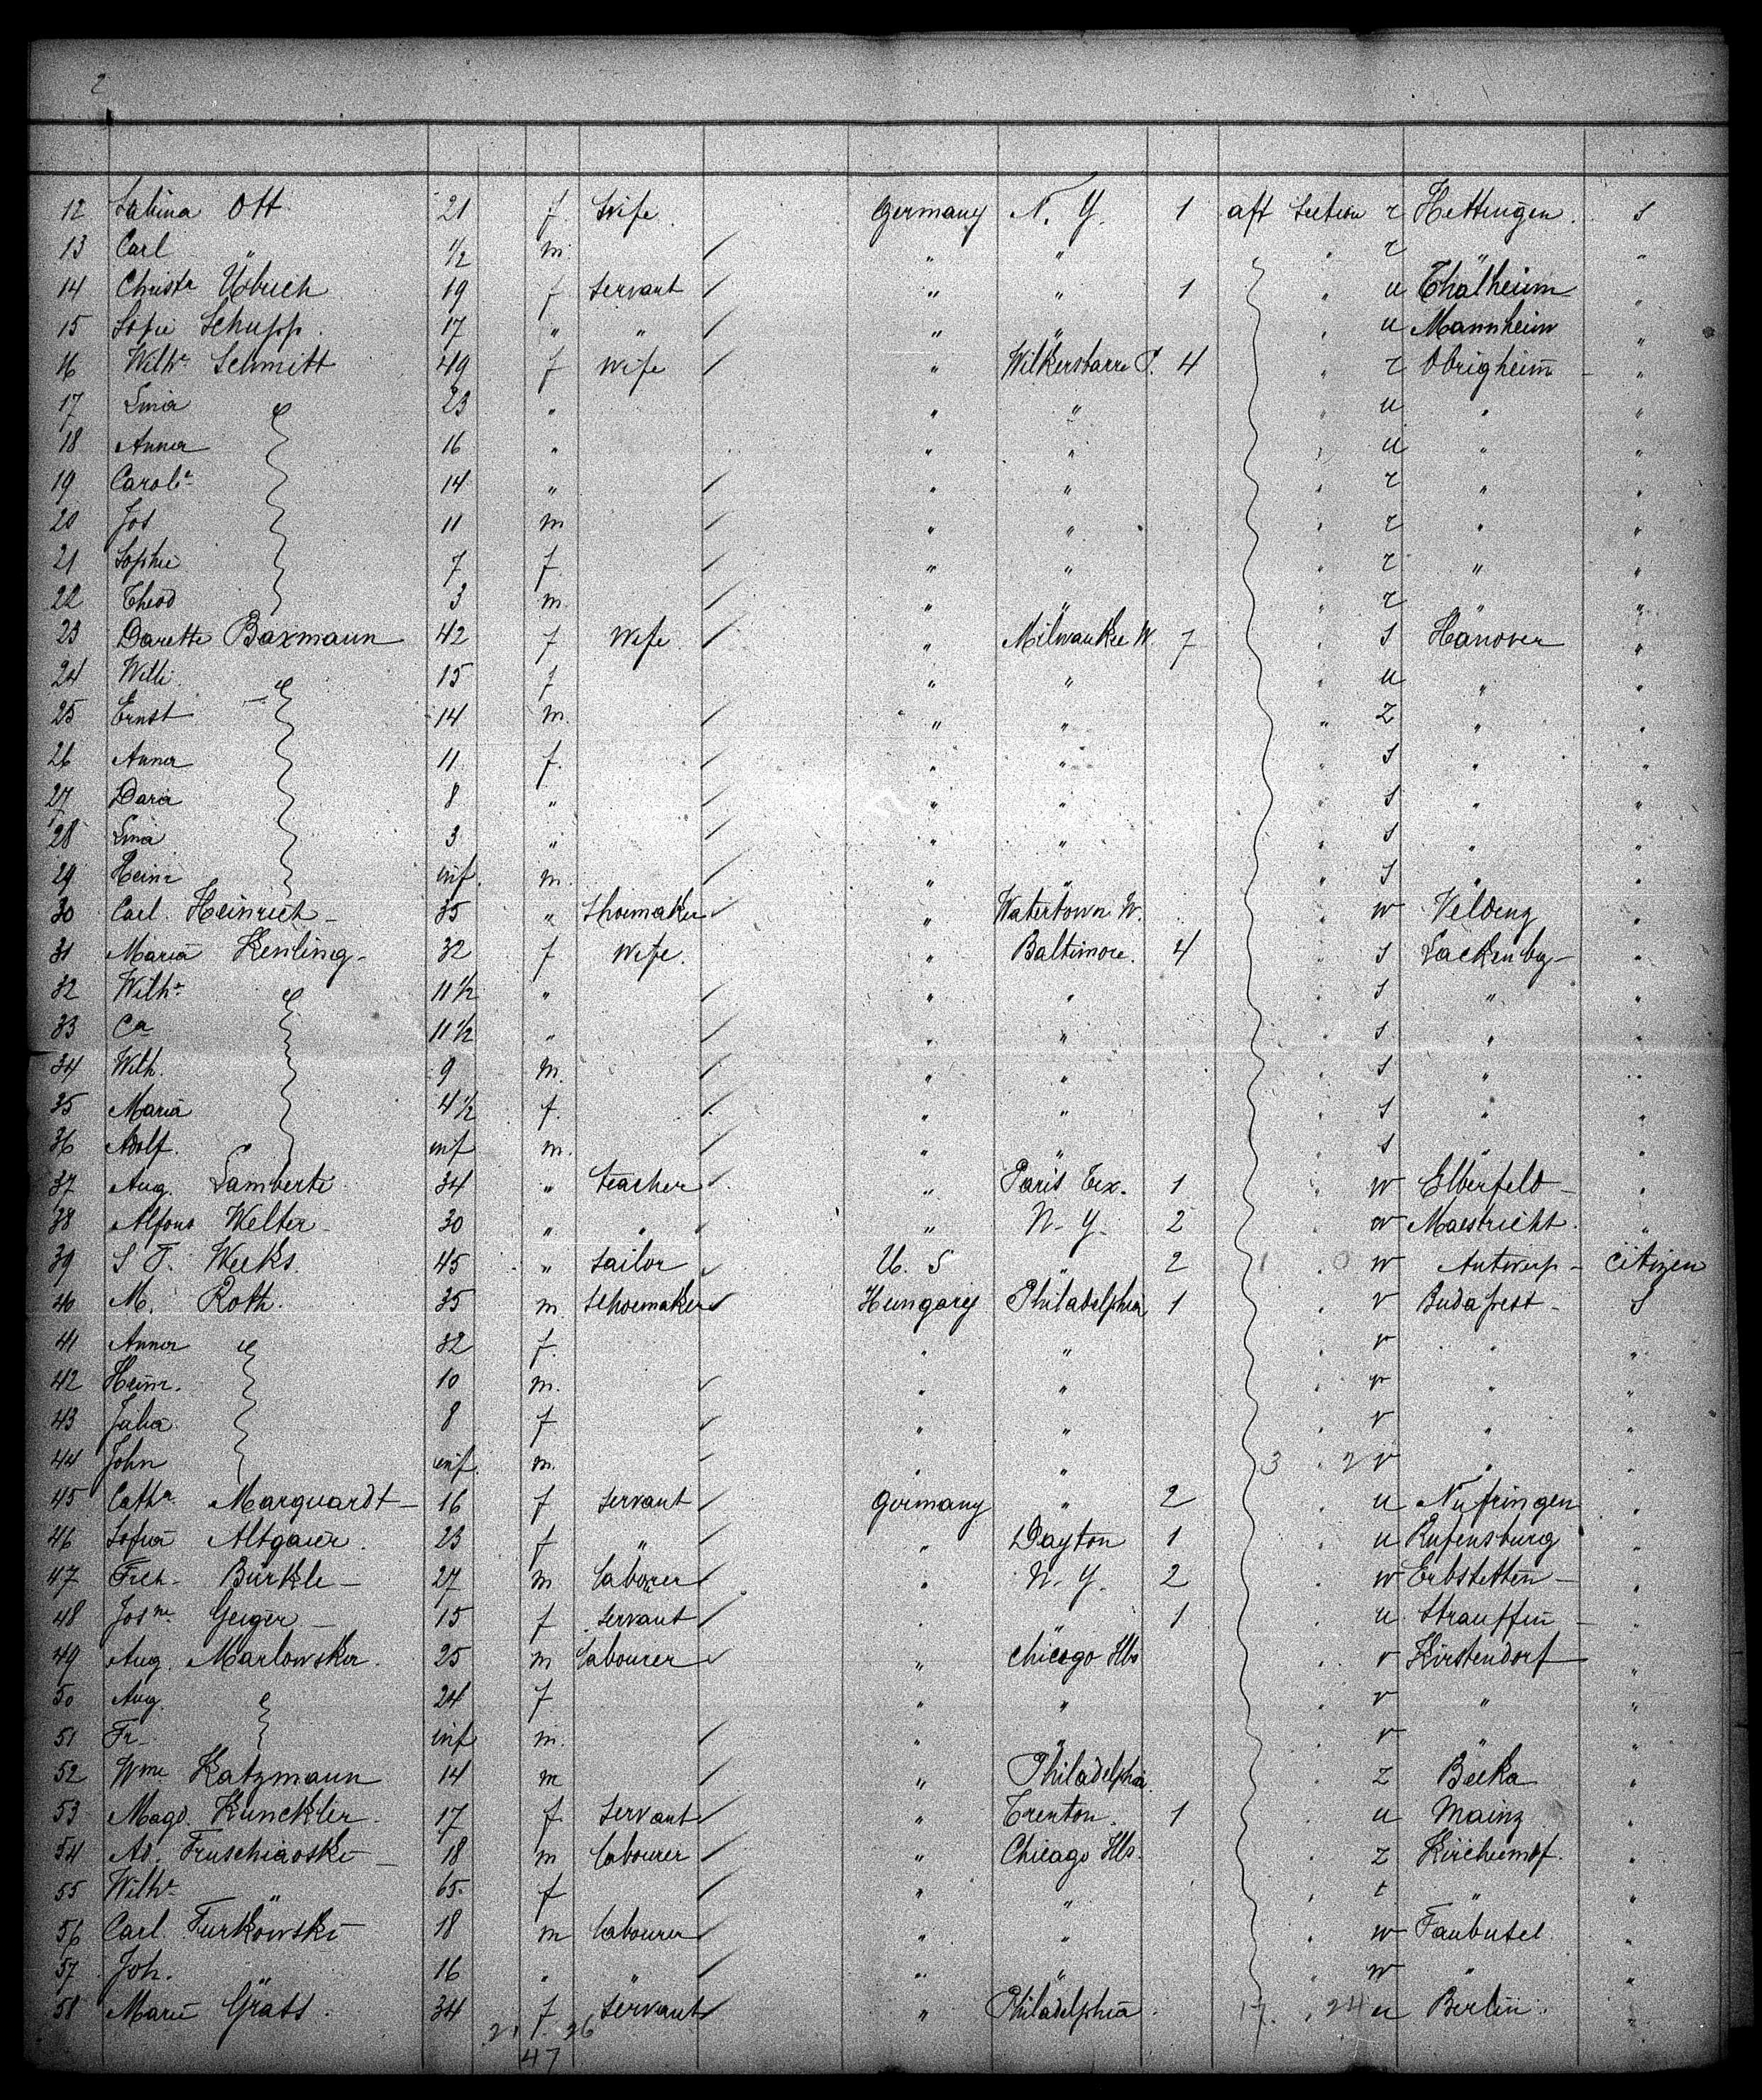 2
12 Sabina Ott 21 f Wife Germany N. Y. 1 aft Section r Hettingen s
13 Carl " 1/2 m " " " r " "
14 Christa 19 f Servant " " 1 " u Thalheim "
15 Sofie Schupp 17 " " " " " u Mannheim "
16 Wilhe Schmitt 49 f Wife " Wilkersbarre P. 4 " r Obrigheim "
17 Lina 23 " " " " u " "
18 Anna 16 " " " " u " "
19 Carole 14 " " " " r " "
20 Jos 11 m " " " r " "
21 Sophie 7 f " " " r " "
22 Theod 3 m " " " r " "
23 Dorette Baxmann 42 f Wife " Milwaukee W. 7 " s Hanover "
24 Willi 15 f " " " u " "
25 Ernst 14 m " " " z " "
26 Anna 11 f " " " s " "
27 Dora 8 " " " " s " "
28 Lina 3 " " " " s " "
29 Heinr inf m " " " s " "
30 Carl Heinrich 35 " Shoemaker " Watertown W. w Veldenz "
31 Maria Kenling 32 f Wife " Baltimore 4 " s "
32 Wilhe 11 1/2 " " " " s " "
33 Ca 11 1/2 " " " " s " "
34 Wilh. 9 m " " " s " "
35 Maria 4 1/2 f " " " s " "
36 Adolf inf m " " " s " "
37 Aug. Lamberti 34 " teacher " Paris Tex. 1 " w Elberfeld "
38 Alfons Welter 30 " " " N. Y. 2 " w Maestricht "
39 S T. Weeks 45 " sailor U. S " 2 " w Antwerp citizen
40 M. Roth 35 m Schoemaker Hungary Philadelphia 1 " v Budapest s
41 Anna 32 f " " " v " "
42 Heinr. 10 m " " " v " "
43 Julia 8 f " " " v " "
44 John inf m " " 3 " 2 v " "
45 Catha Marquardt 16 f Servant Germany " 2 " u Nufringen "
46 Sofia Altgaier 23 f " " Dayton 1 " u "
47 Frch. Bürkle 27 m laborer " N. Y. 2 " w Erbstetten "
48 Josne Geiger 15 f Servant " " 1 " u "
49 Aug. Marlowska 25 m labourer " Chicago Ills " v Kirstendorf "
50 Aug. 24 f " " " v " "
51 Fr inf m " " " v " "
52 Wme Katzmann 14 m " Philadelphia " z Beeka "
53 Magd. Kunckler 17 f Servant " Trenton 1 " u Mainz "
54 Ad. 18 m labourer " Chicago Ills. " z "
55 Wilhe " 65 f " " " t " "
56 Carl Turkowski 18 m labourer " " " w "
57 Joh. " 16 " " " " " w " "
58 Marie Grass 34 f Servant " Philadelphia 17 " 24 u Berlin "
21 26
47